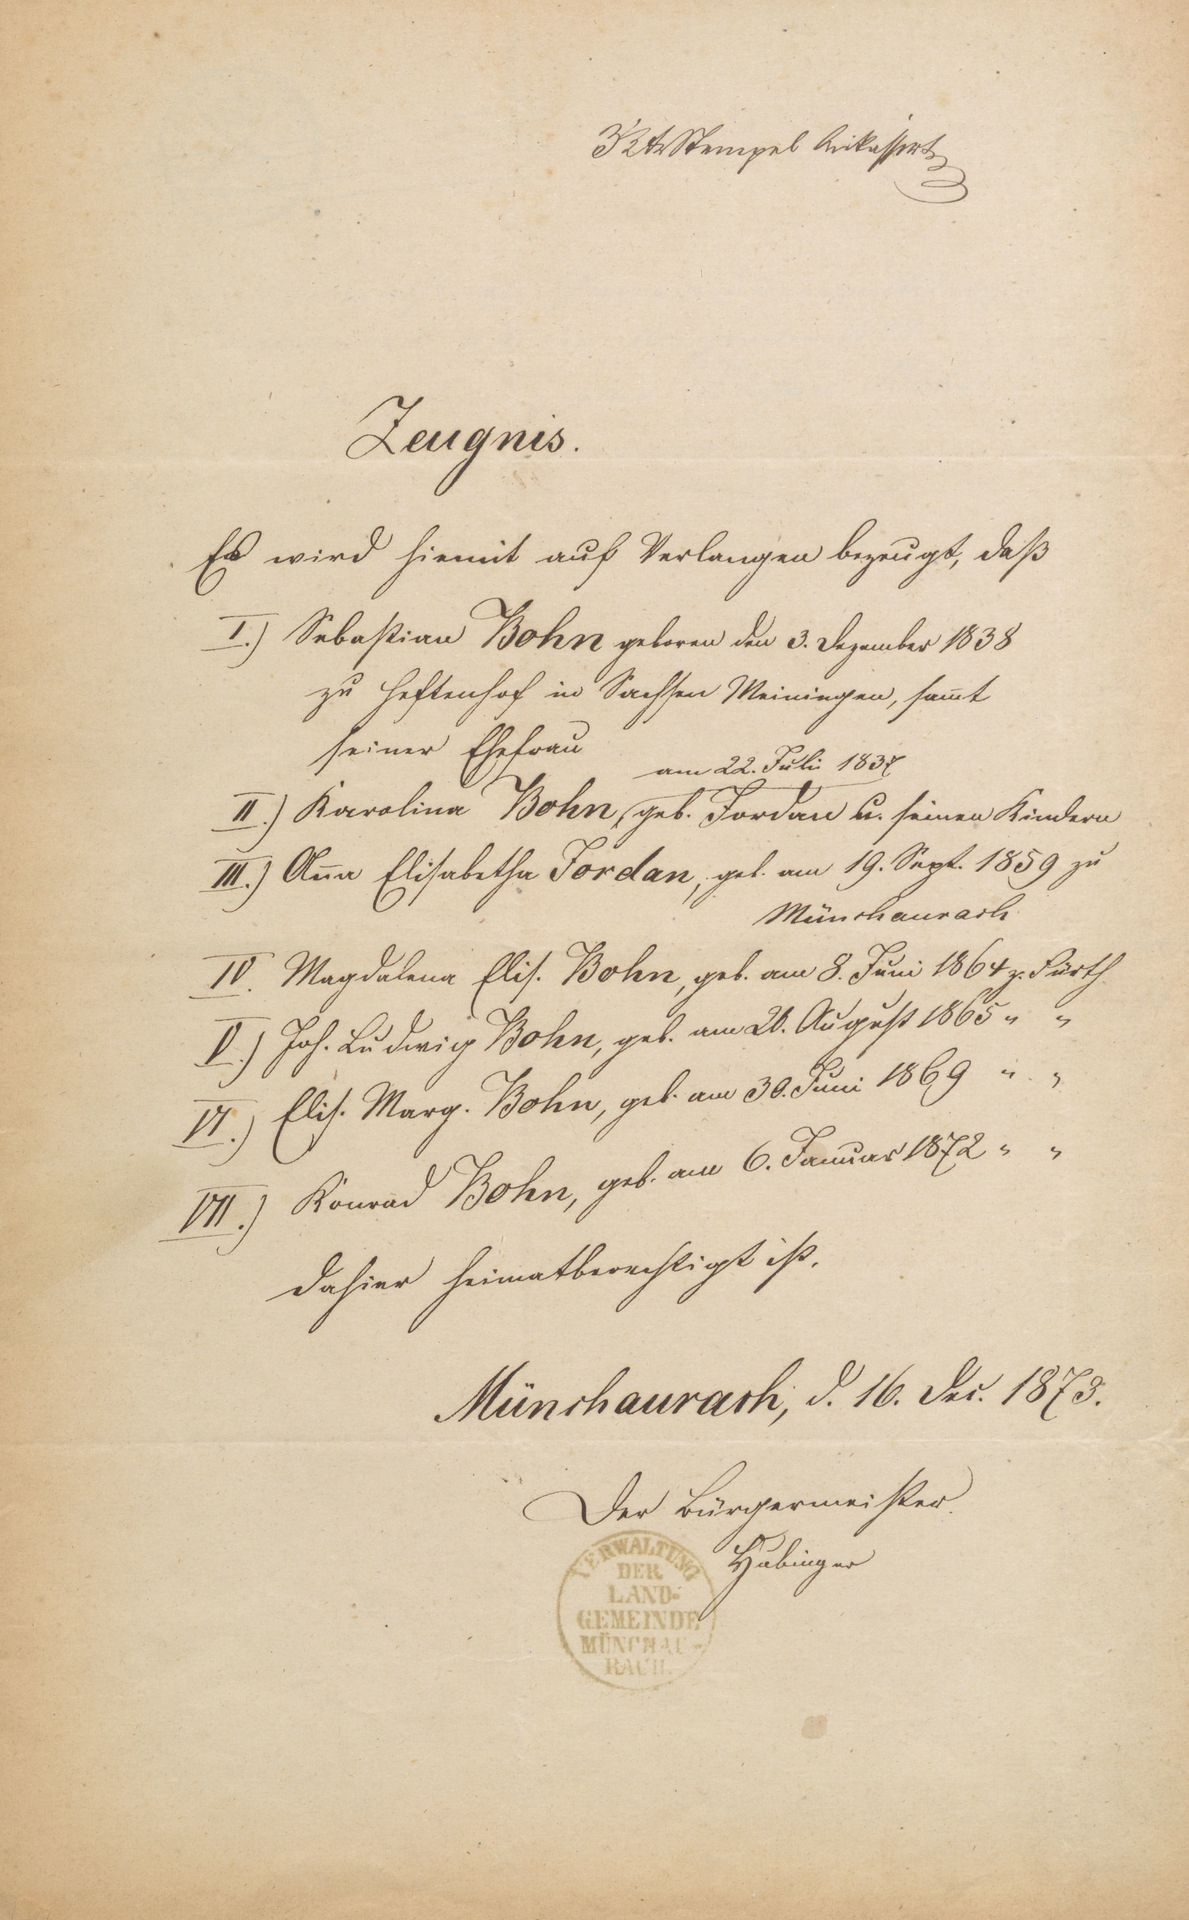 3 Kr Stempel
Zeugnis.
Es wird hiemit auf Verlangen bezeugt, daß
I.) Sebastian Bohn geboren den 3. Dezember 1838
zu Heftenhof in Sachsen Meiningen, sam̄t
seiner Ehefrau
am 22. Juli 1837
II.) Karolina Bohn, geb. Jordan u. seinen Kindern
III.) An̄a Elisabetha Jordan, geb. am 19. Sept. 1859 zu
Münchaurach
IV. Magdalena Elis. Bohn, geb. am 8. Juni 1864 z. Fürth
V.) Joh. Ludwig Bohn, geb. am 28. August 1865 " "
VI.) Elis. Marg. Bohn, geb. am 30. Juni 1869 " "
VII.) Konrad Bohn, geb. am 6. Januar 1872 " "
dahier heimatberechtigt ist.
Münchaurach, d. 16. Dec. 1873.
Der Bürgermeister
Hubinger
VERWALTUNG
DER
LAND-
GEMEINDE
MÜNCHAU-
RACH.